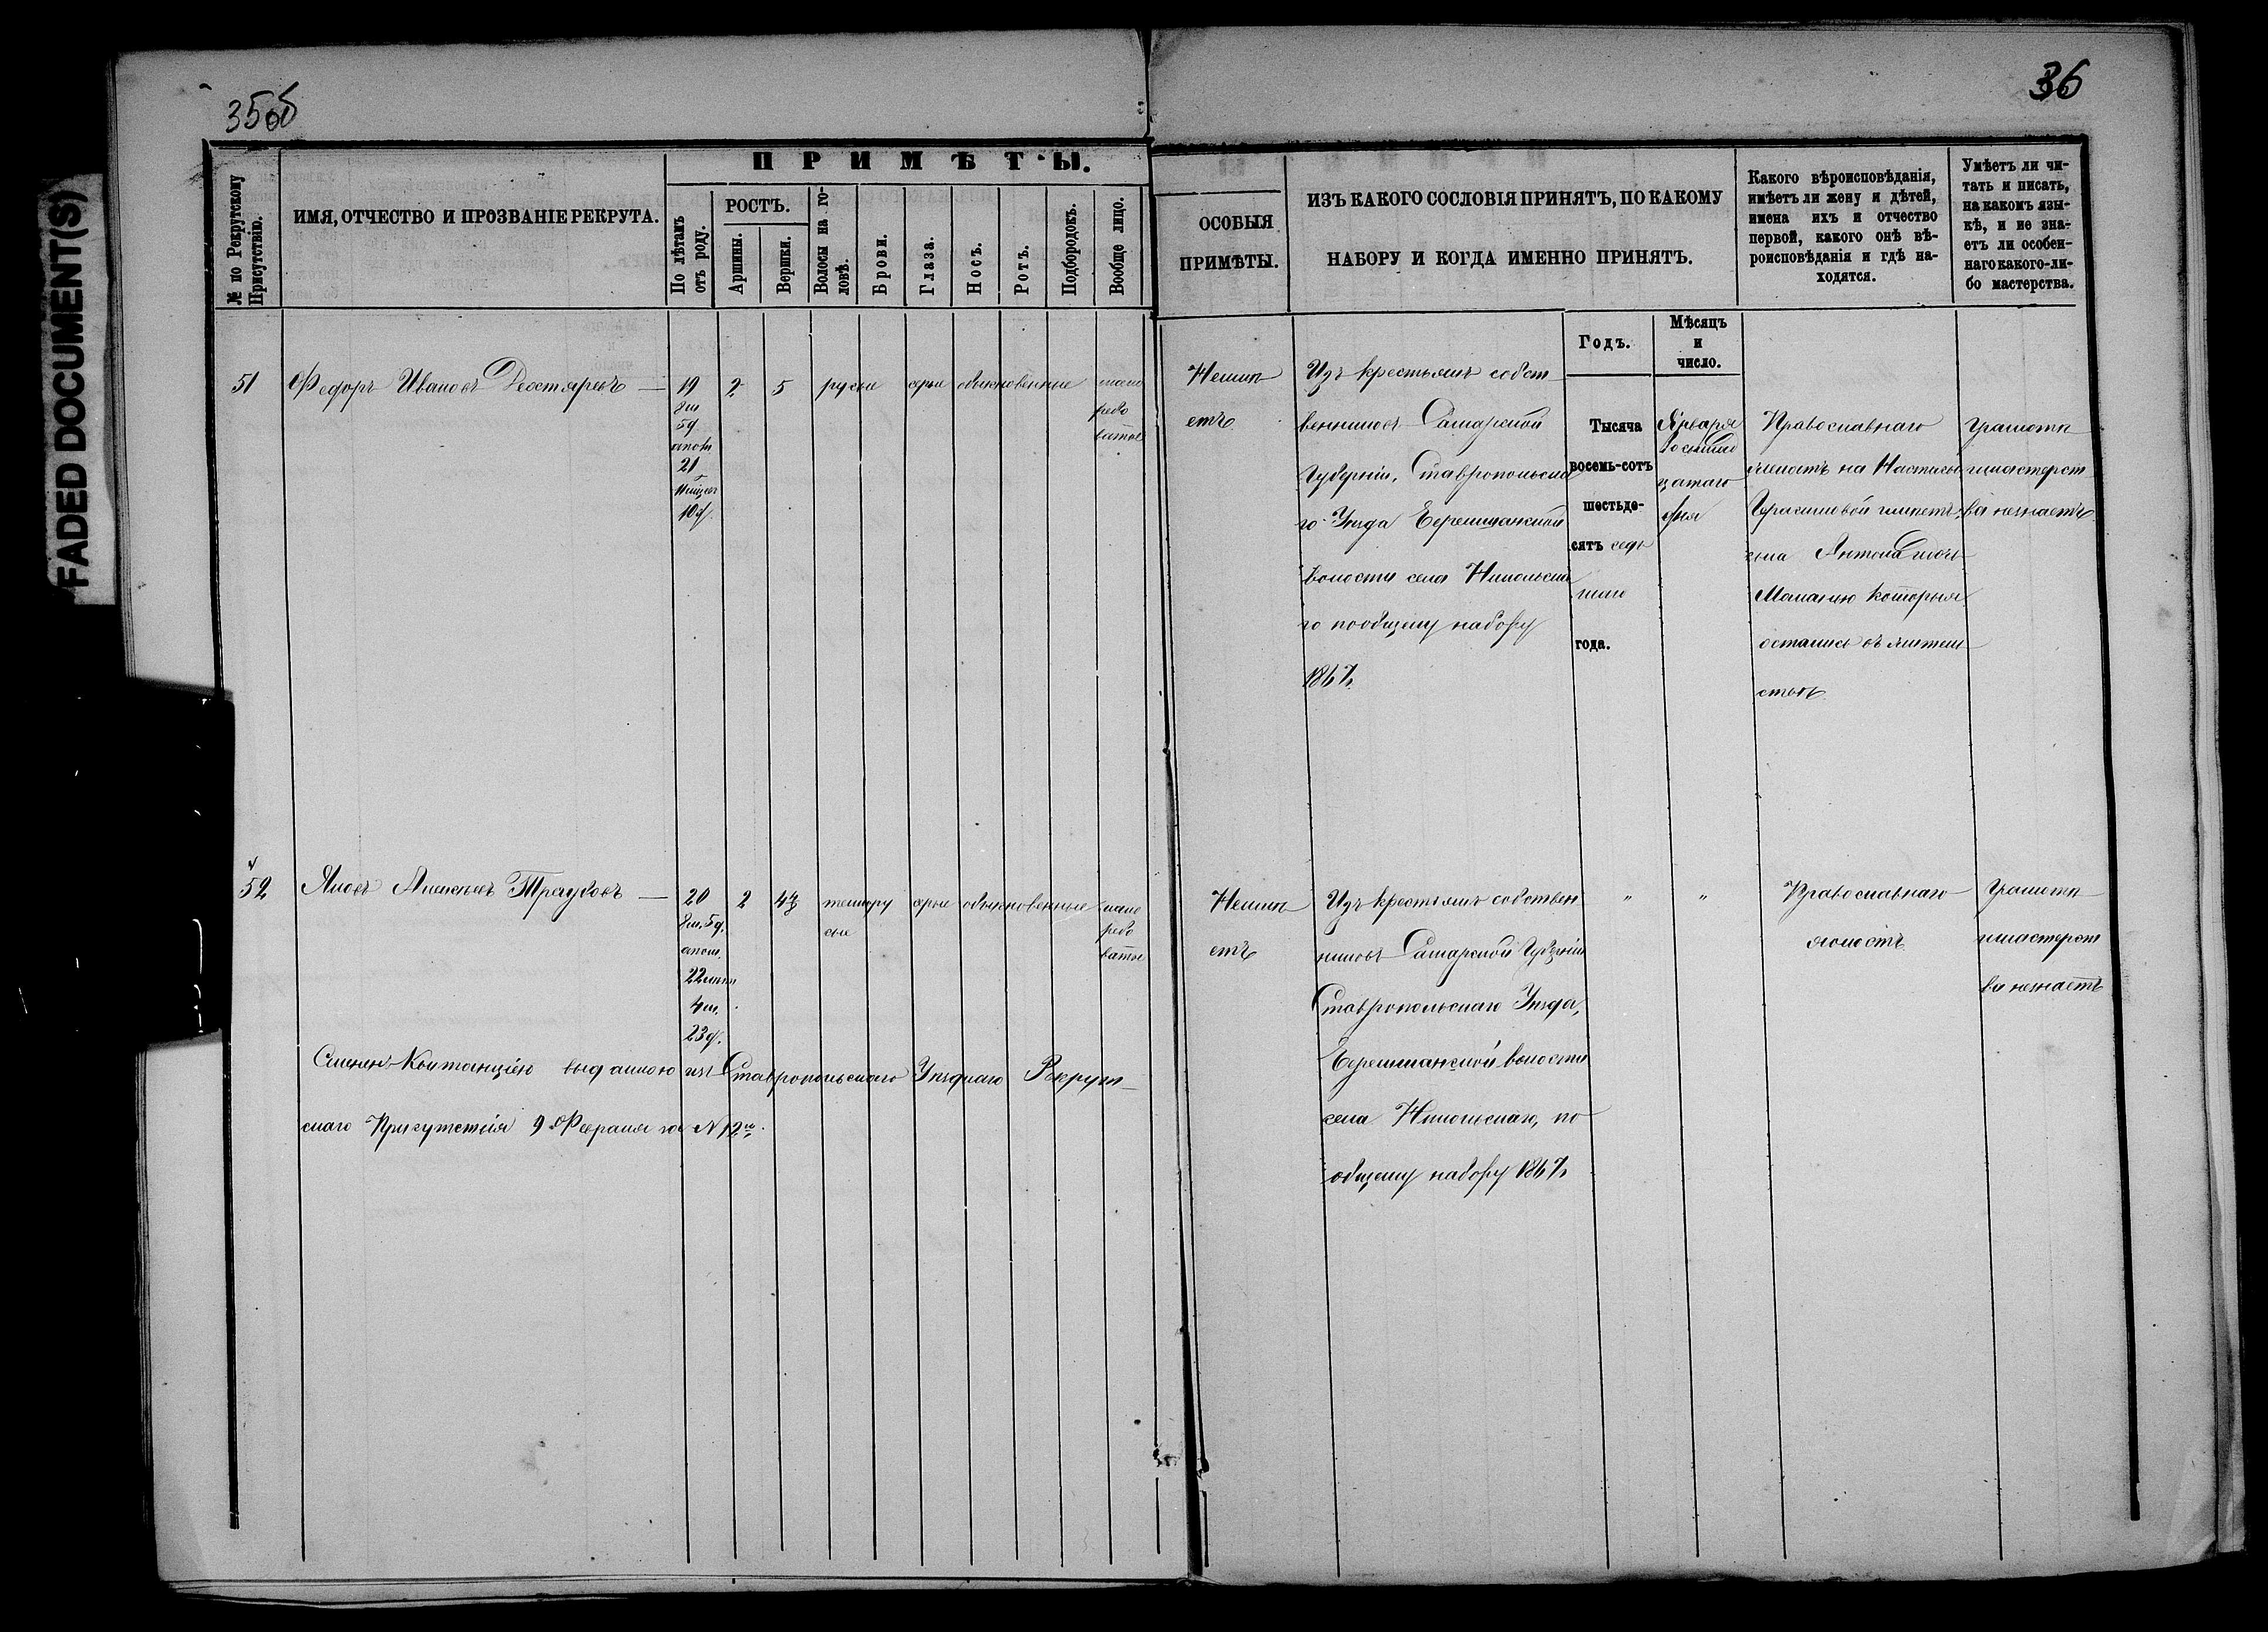 FADED DOCUMENT(S)
35об
36
ПРИМѢТЫ.
№ по Рекрутскому Присутствію.
ИМЯ, ОТЧЕСТВО И ПРОЗВАНІЕ РЕКРУТА.
По лѣтамъ отъ роду.
РОСТЪ.
Аршины.
Вершки.
Волосы на го-
ловѣ.
Брови.
Глаза.
Носъ.
Ротъ.
Подбородокъ.
Вообще лицо.
ОСОБЫЯ
ПРИМѢТЫ.
ИЗЪ КАКОГО СОСЛОВІЯ ПРИНЯТЪ, ПО КАКОМУ
НАБОРУ И КОГДА ИМЕННО ПРИНЯТЪ.
Какого вѣроисповѣданія,
имѣетъ ли жену и дѣтей,
имена ихъ и отчество
первой, какого онѣ вѣ-
роисповѣданія и гдѣ на-
ходятся.
Умѣетъ ли чи-
тать и писать,
на какомъ язы-
кѣ, и не зна-
етъ ли особен-
наго какого-ли-
бо мастерства.
Годъ.
Мѣсяцъ
и
число.
51
Федоръ Ивановъ Дехтяревъ —
19
8м
5д
апот
21
10д
2
5
русые
серые
обыкновенные
рябо
ватое
Неимѣ
етъ
Изъ крестьянъ собст
венниковъ Самарской
Губерніи, Ставропольска
го Уѣзда Черемшанской
волости села Никольска
го пообщему набору
1867г.
Тысяча
восемь-сотъ
шестьде-
сятъ седь
маго
года.
Января
дня
Православнаго
женатъ на Настасьи
Герасимовой имѣетъ
сына Антона дочь
Маланию которыя
остались въ житель
ствѣ
Грамотѣ
имастерст
ва незнаетъ
52
Яковъ Алексѣевъ Трауховъ —
20
8м. 5д.
апот.
22
4м.
23д.
2
4½
темнору
сые
серые
обыкновенные
рябо
ватое
Неимѣ
етъ
Изъ крестьянъ собствен
никовъ Самарской Губерніи
Ставропольскаго Уѣзда,
Черемшанской волости
села Никольскаго, по
общему набору 1867г
"
"
Православнаго
холостъ
Грамотѣ
имастерст
ва незнаетъ
Смененъ Квитанціею выданною изъ Ставропольскаго Уѣзднаго Рекрут
скаго Присутствія 9 Февраля за № 12м.